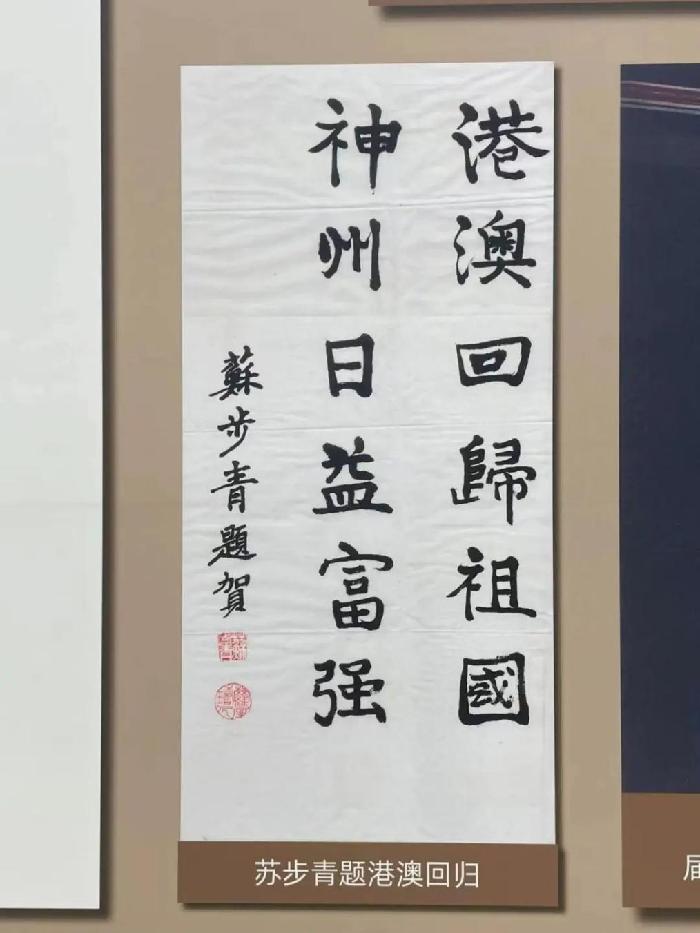 港澳回歸祖國
神州日益富强
蘇步青題賀
苏步青题港澳回归
届